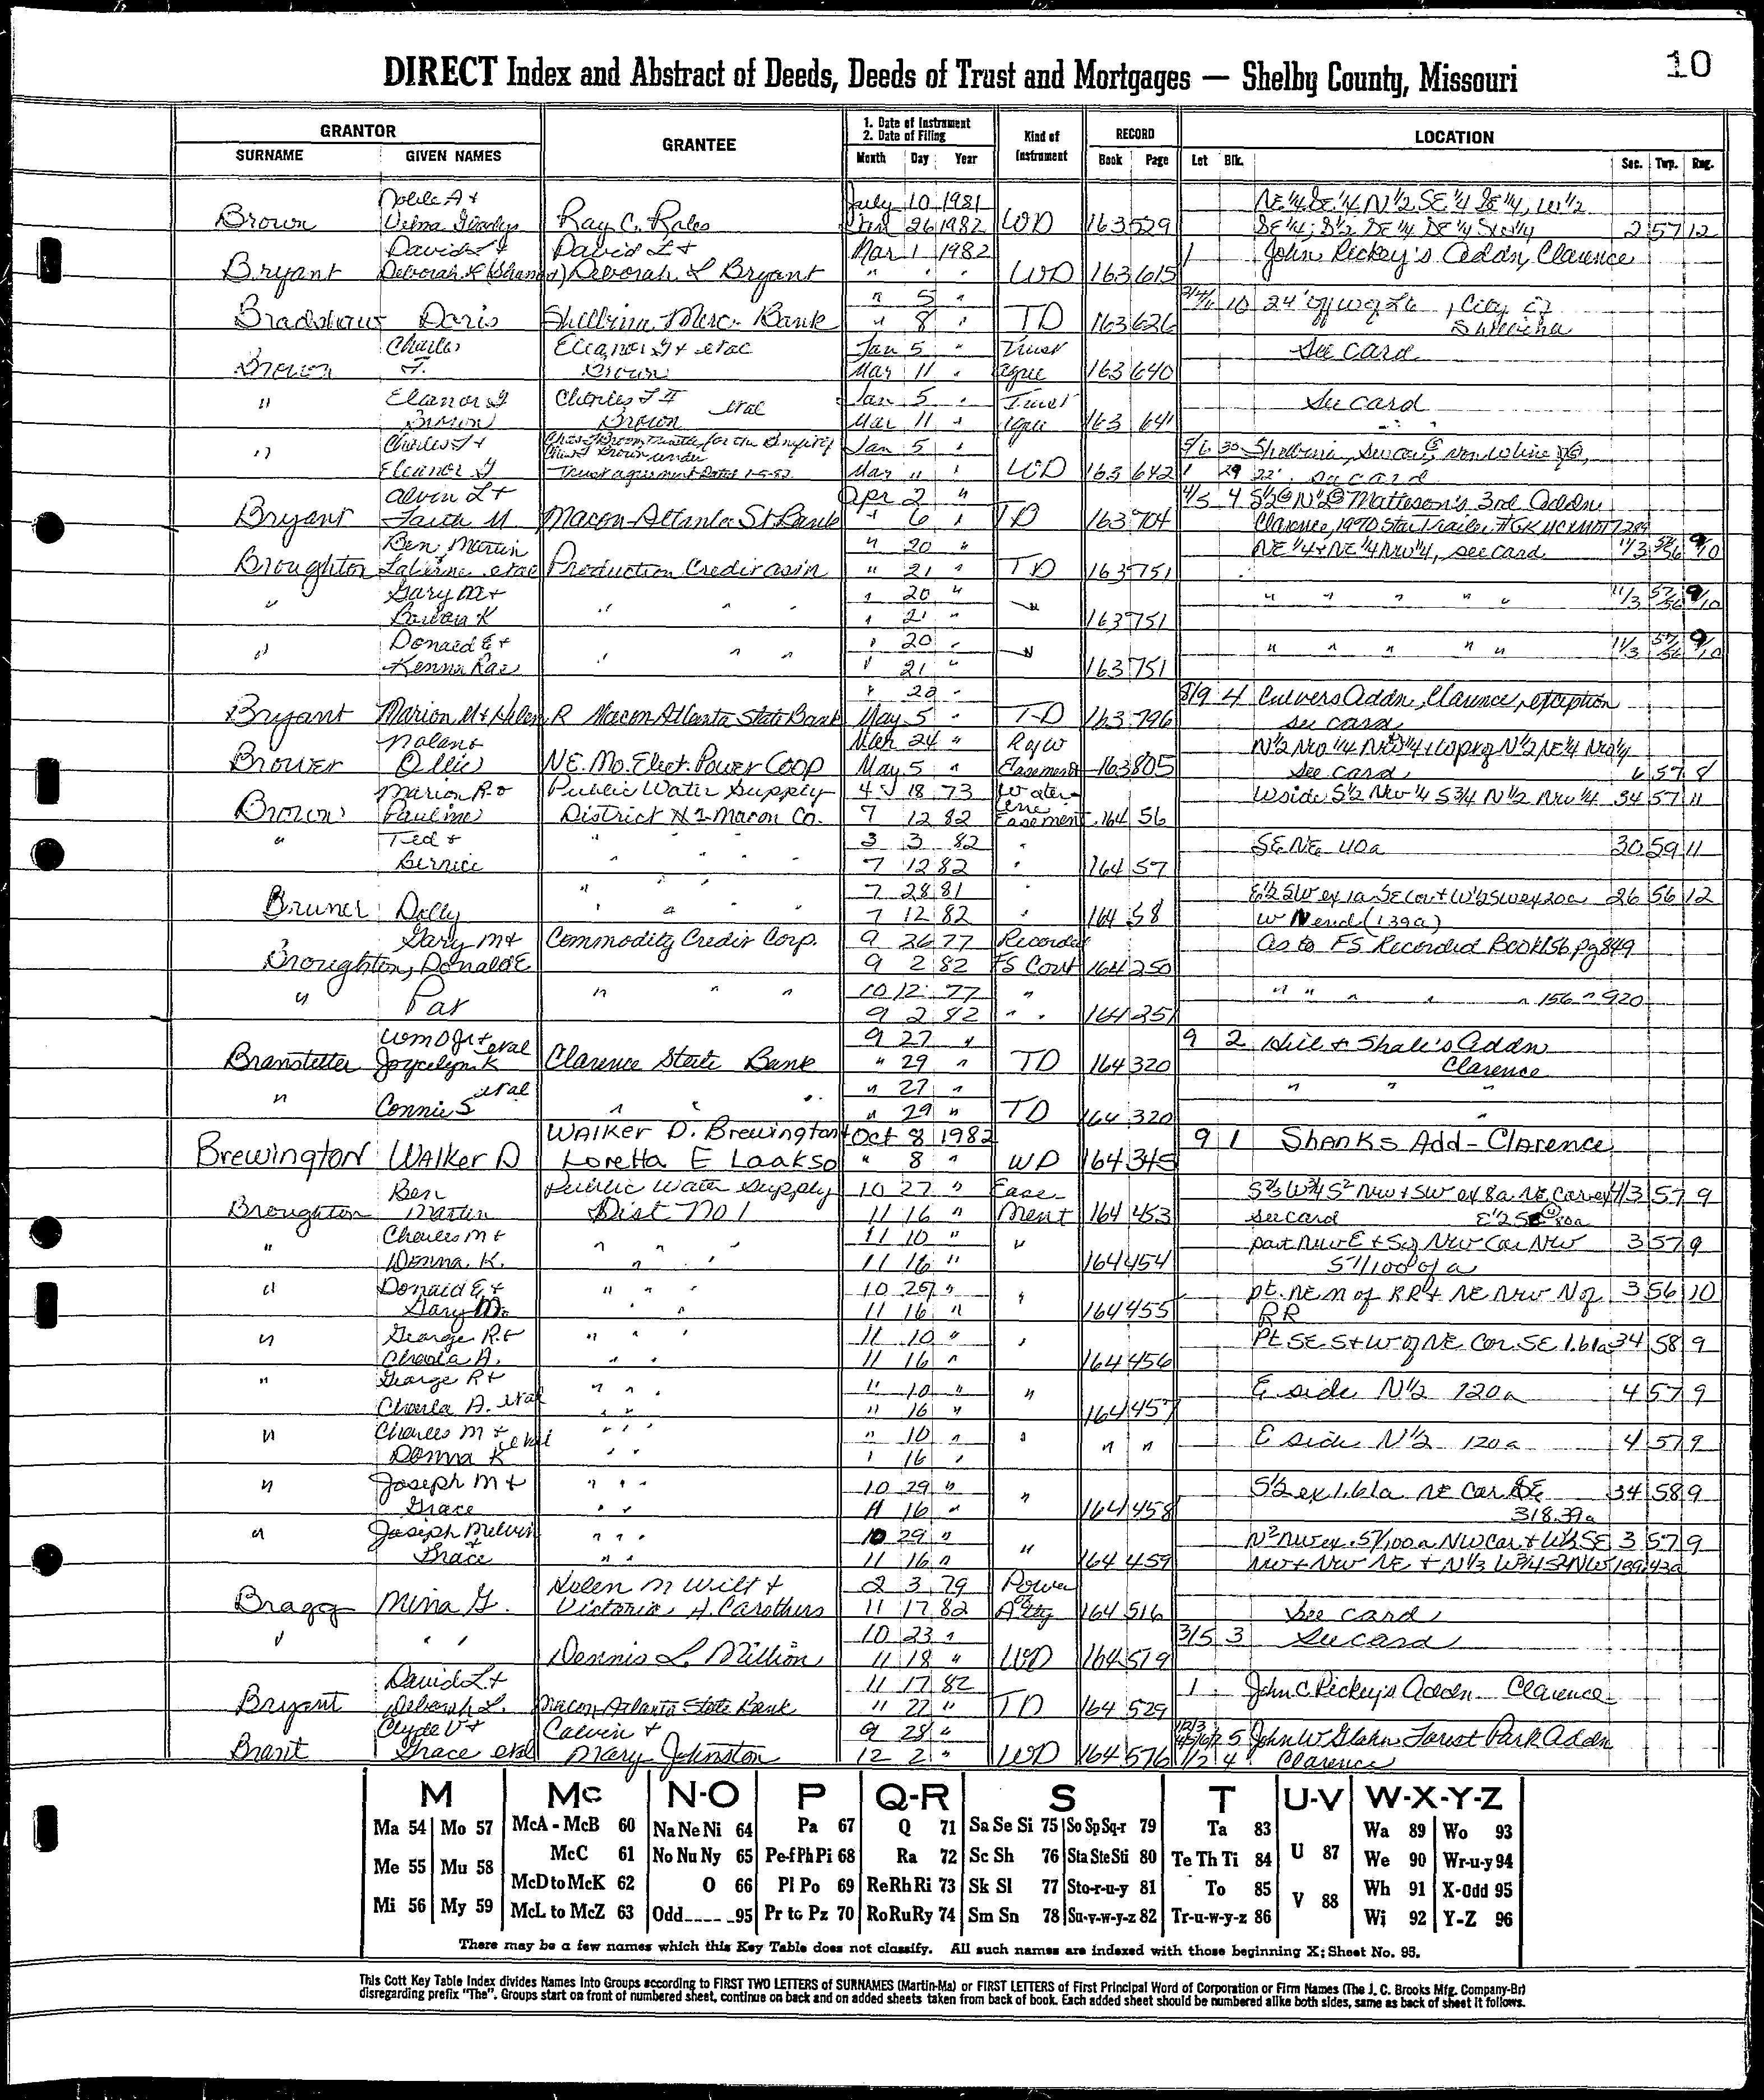 10
DIRECT Index and Abstract of Deeds, Deeds of Trust and Mortgages — Shelby County, Missouri
GRANTOR
SURNAME GIVEN NAMES
GRANTEE
1. Date of Instrument
2. Date of Filing
Month Day Year
Kind of Instrument
RECORD
Book Page
LOCATION
Lot Blk. Sec. Twp. Rng.
Noble A + July 10 1981 NE 1/4 SE 1/4, N 1/2 SE 1/4 SE 1/4, W 1/2
Brown Velma Gladys Ray C. Rales Jan 26 1982 WD 163 529 SE 1/4; S 1/2 SE 1/4 SE 1/4 2 57 12
David L + David L + Mar 1 1982 1 John Rickey's Addn, Clarence
Bryant Deborah L Deborah L Bryant " " " WD 163 615
" 5 " 10 24' off W of L6, City of
Bradshaw Doris Shelbina Merc. Bank " 8 " TD 163 626 Shelbina
Charles Eleanor G + etal Jan 5 " Trust See card
Brown F. Brown Mar 11 " agree 163 640
" Eleanor G Charles F etal Jan 5 " Trust See card
Brown Brown Mar 11 " agree 163 641 " "
" Charles F + Jan 5 " 5/6 30 Shelbina, See card
Eleanor G Trust agreement Dated 1-5-82 Mar 11 " WD 163 642 1 29 22'. see card
Alvin L + Apr 2 " 4/5 4 Matteson's 3rd Addn
Bryant Faith M Macon-Atlanta St Bank " 6 " TD 163 704 Clarence, 1970 Star Trailer
Ben Martin " 20 " NE 1/4 + NE 1/4 NW 1/4, see card 11/3 57/56 9/10
Broughton LaVerne etal Production Credit assn " 21 " TD 163 751
" Gary M + " " " " 20 " " " " " " " 11/3 57/56 9/10
Barbara K " 21 " 163 751
" Donald E + " " " " 20 " " " " " " " 11/3 57/56 9/10
Kenna Rae " 21 " 163 751
" 28 " 8/9 4 Culvers Addn, Clarence, exception
Bryant Marion M + Helen R Macon Atlanta State Bank May 5 " TD 163 796 see card
Nolan + Mar 24 " R of W N 1/2 NW 1/4 NW 1/4 + W pt of N 1/2 NE 1/4 NW 1/4
Brower Ollie NE. Mo. Elect. Power COOP May 5 " Easement 163 805 See card 6 57 8
Marion R. + Public Water Supply 4 18 73 Water Line W side S 1/2 NW 1/4 S 3/4 N 1/2 NW 1/4 34 57 11
Brown Pauline District #1 Macon Co. 7 12 82 Easement 164 56
" Ted + " " " 3 3 82 " SE NE 40a 30 59 11
Bernice " " " 7 12 82 " 164 57
" " " 7 28 81 " E 1/2 SW ex 1a SE Cor + W 1/2 SW ex 20a 26 56 12
Bruner Dolly " " " 7 12 82 " 164 58 W N end (139a)
Gary M + Commodity Credit Corp. 9 26 77 Recorded As to FS Recorded Book 156, pg 849
Broughton, Donald E 9 2 82 FS Cont 164 250
" Pat " " " 10 12 77 " " " " " " 156 " 920
9 2 82 " " 164 251
Wm D Jr + etal 9 27 " 9 2 Hill + Shale's Addn
Branstetter Joycelyn K Clarence State Bank " 29 " TD 164 320 Clarence
etal " 27 " " " "
" Connie S " " " " 29 " TD 164 320 "
Walker D. Brewington + Oct 8 1982 9 1 Shanks Add - Clarence
Brewington Walker D Loretta E Laakso " 8 " WD 164 345
Ben Public Water Supply 10 27 " Ease- 3 57 9
Broughton Martin Dist No 1 11 16 " ment 164 453 see card
" Charles M + " " " 11 10 " " part NW E + S of NW Cor NW 3 57 9
Donna K. " " 11 16 " 164 454 57/100 of a
" Donald E + " " " 10 29 " " pt. NE N of RR + NE NW N of 3 56 10
Gary M. " " 11 16 " 164 455 RR
" George R. + " " " 11 10 " " Pt SE S + W of NE Cor SE 1.61a 34 58 9
Charla A. " " 11 16 " 164 456
" George R + " " " 11 10 " " E side N 1/2 120a 4 57 9
Charla A. etal " " " 16 " 164 457
" Charles M + etal " " " " 10 " " " " E side N 1/2 120a 4 57 9
Donna K " " " 16 "
" Joseph M + " " " 10 29 " " S 1/2 ex 1.61a NE Cor SE 34 58 9
Grace " " 11 16 " 164 458 318.39a
" Joseph Melvin + " " " 10 29 " " N 2 NW ex .57/100a NW Cor + W 1/2 SE 3 57 9
Grace " " 11 16 " 164 459 NW + NW NE + N 1/3 W 3/4 S 2 NW 189.43a
Helen M Wilt + 2 3 79 Power
Bragg Mina G. Victoria A. Carothers 11 17 82 of Atty 164 516 See card
" " " 10 23 " 3/5 3 See card
Dennis L. Million 11 18 " WD 164 519
David L + 11 17 82 1 John C. Rickey's Addn Clarence
Bryant Deborah L. Macon-Atlanta State Bank " 22 " TD 164 529
Clyde V + Calvin + 9 28 " 5 John W Glahn Forest Park Addn
Brant Grace etal Mary Johnston 12 2 " WD 164 576 1/2 4 Clarence
M Mc N-O P Q-R S T U-V W-X-Y-Z
Ma 54 Mo 57 McA - McB 60 Na Ne Ni 64 Pa 67 Q 71 Sa Se Si 75 So Sp Sq-r 79 Ta 83 U 87 Wa 89 Wo 93
Me 55 Mu 58 McC 61 No Nu Ny 65 Pe-f Ph Pi 68 Ra 72 Sc Sh 76 Sta Ste Sti 80 Te Th Ti 84 We 90 Wr-u-y 94
McD to McK 62 O 66 Pl Po 69 Re Rh Ri 73 Sk Sl 77 Sto-r-u-y 81 To 85 V 88 Wh 91 X-Odd 95
Mi 56 My 59 McL to McZ 63 Odd---- 95 Pr to Pz 70 Ro Ru Ry 74 Sm Sn 78 Su-v-w-y-z 82 Tr-u-w-y-z 86 Wi 92 Y-Z 96
There may be a few names which this Key Table does not classify. All such names are indexed with those beginning X; Sheet No. 95.
This Cott Key Table Index divides Names Into Groups according to FIRST TWO LETTERS of SURNAMES (Martin-Ma) or FIRST LETTERS of First Principal Word of Corporation or Firm Names (The J. C. Brooks Mfg. Company-Br)
disregarding prefix "The". Groups start on front of numbered sheet, continue on back and on added sheets taken from back of book. Each added sheet should be numbered alike both sides, same as back of sheet it follows.